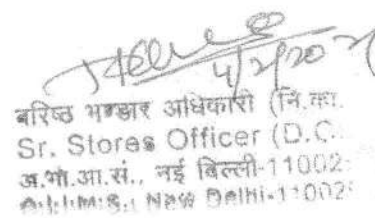 4/2/20
वरिष्ठ भण्डार अधिकारी (नि.का.
Sr. Stores Officer (D.O.
अ.भा.आ.सं., नई दिल्ली-11002
A.I.I.M.S., New Delhi-11002